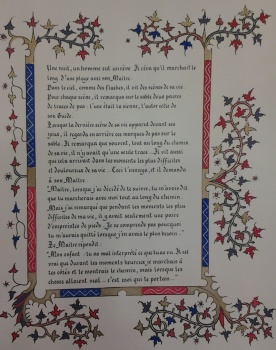 Une nuit, un homme eut un rêve. Il rêva qu'il marchait le
long d'une plage avec son Maître.
Dans le ciel, comme des flashes, il vit des scènes de sa vie.
Pour chaque scène, il remarqua sur le sable deux paires
de traces de pas : l'une était la sienne, l'autre celle de
son Guide.
Lorsque la dernière scène de sa vie apparut devant ses
yeux, il regarda en arrière ces marques de pas sur le
sable. Il remarqua que souvent, tout au long du chemin
de sa vie, il n'y avait qu'une seule trace. Il vit aussi
que cela arrivait dans les moments les plus difficiles
et douloureux de sa vie... Ceci l'ennuya, et il demanda
à son Maître.
"Maître, lorsque j'ai décidé de te suivre, tu m'avais dit
que tu marcherais avec moi tout au long du chemin
Mais j'ai remarqué que pendant les moments les plus
difficiles de ma vie, il y avait seulement une paire
d'empreintes de pieds. Je ne comprends pas pourquoi
tu m'aurais quitté lorsque j'en avais le plus besoin."
Le Maître répondit :
"Mon enfant, tu as mal interprété ce que tu as vu. Il est
vrai que durant les moments heureux je marchais à
tes côtés et te montrais le chemin, mais lorsque les
choses allaient mal... c'est moi qui te portais..."